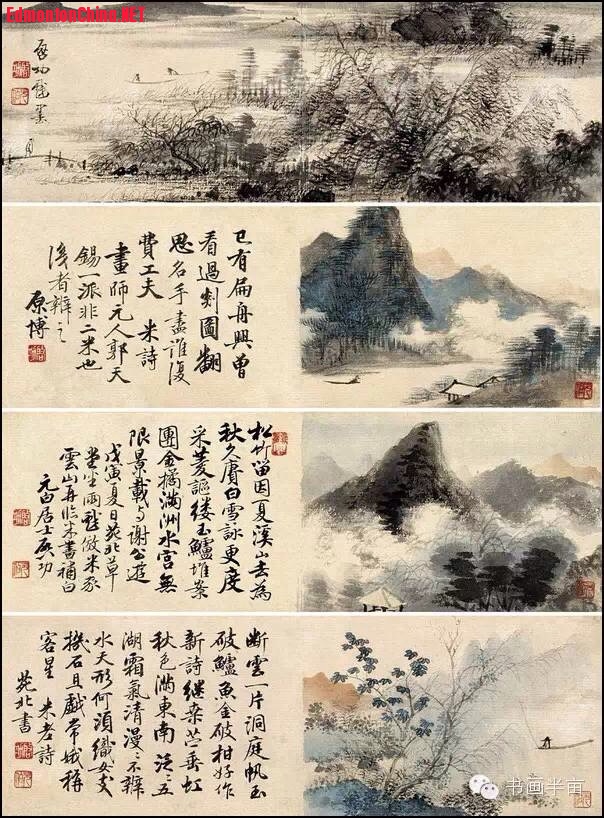 EdmontonChina.NET
啟功戲墨
已有扁舟興曾
看過剡圖翻
思名手盡誰復
費工夫 米詩
畫師元人郭天
錫一派非二米也
後者辨之
原博
松竹留因夏溪山去為
秋久賡白雪詠更度
采菱謳縷玉鱸堆案
團金橘滿洲水宮無
限景載與謝公遊
戊寅夏日苑北草
堂坐雨戲倣米家
雲山再臨米書補白
元白居士啟功
斷雲一片洞庭帆玉
破鱸魚金破柑好作
新詩繼桑苧垂虹
秋色滿東南泛泛五
湖霜氣清漫漫不辨
水天形何須織女支
機石且戲常娥稱
客星 米老詩
苑北書
书画半亩